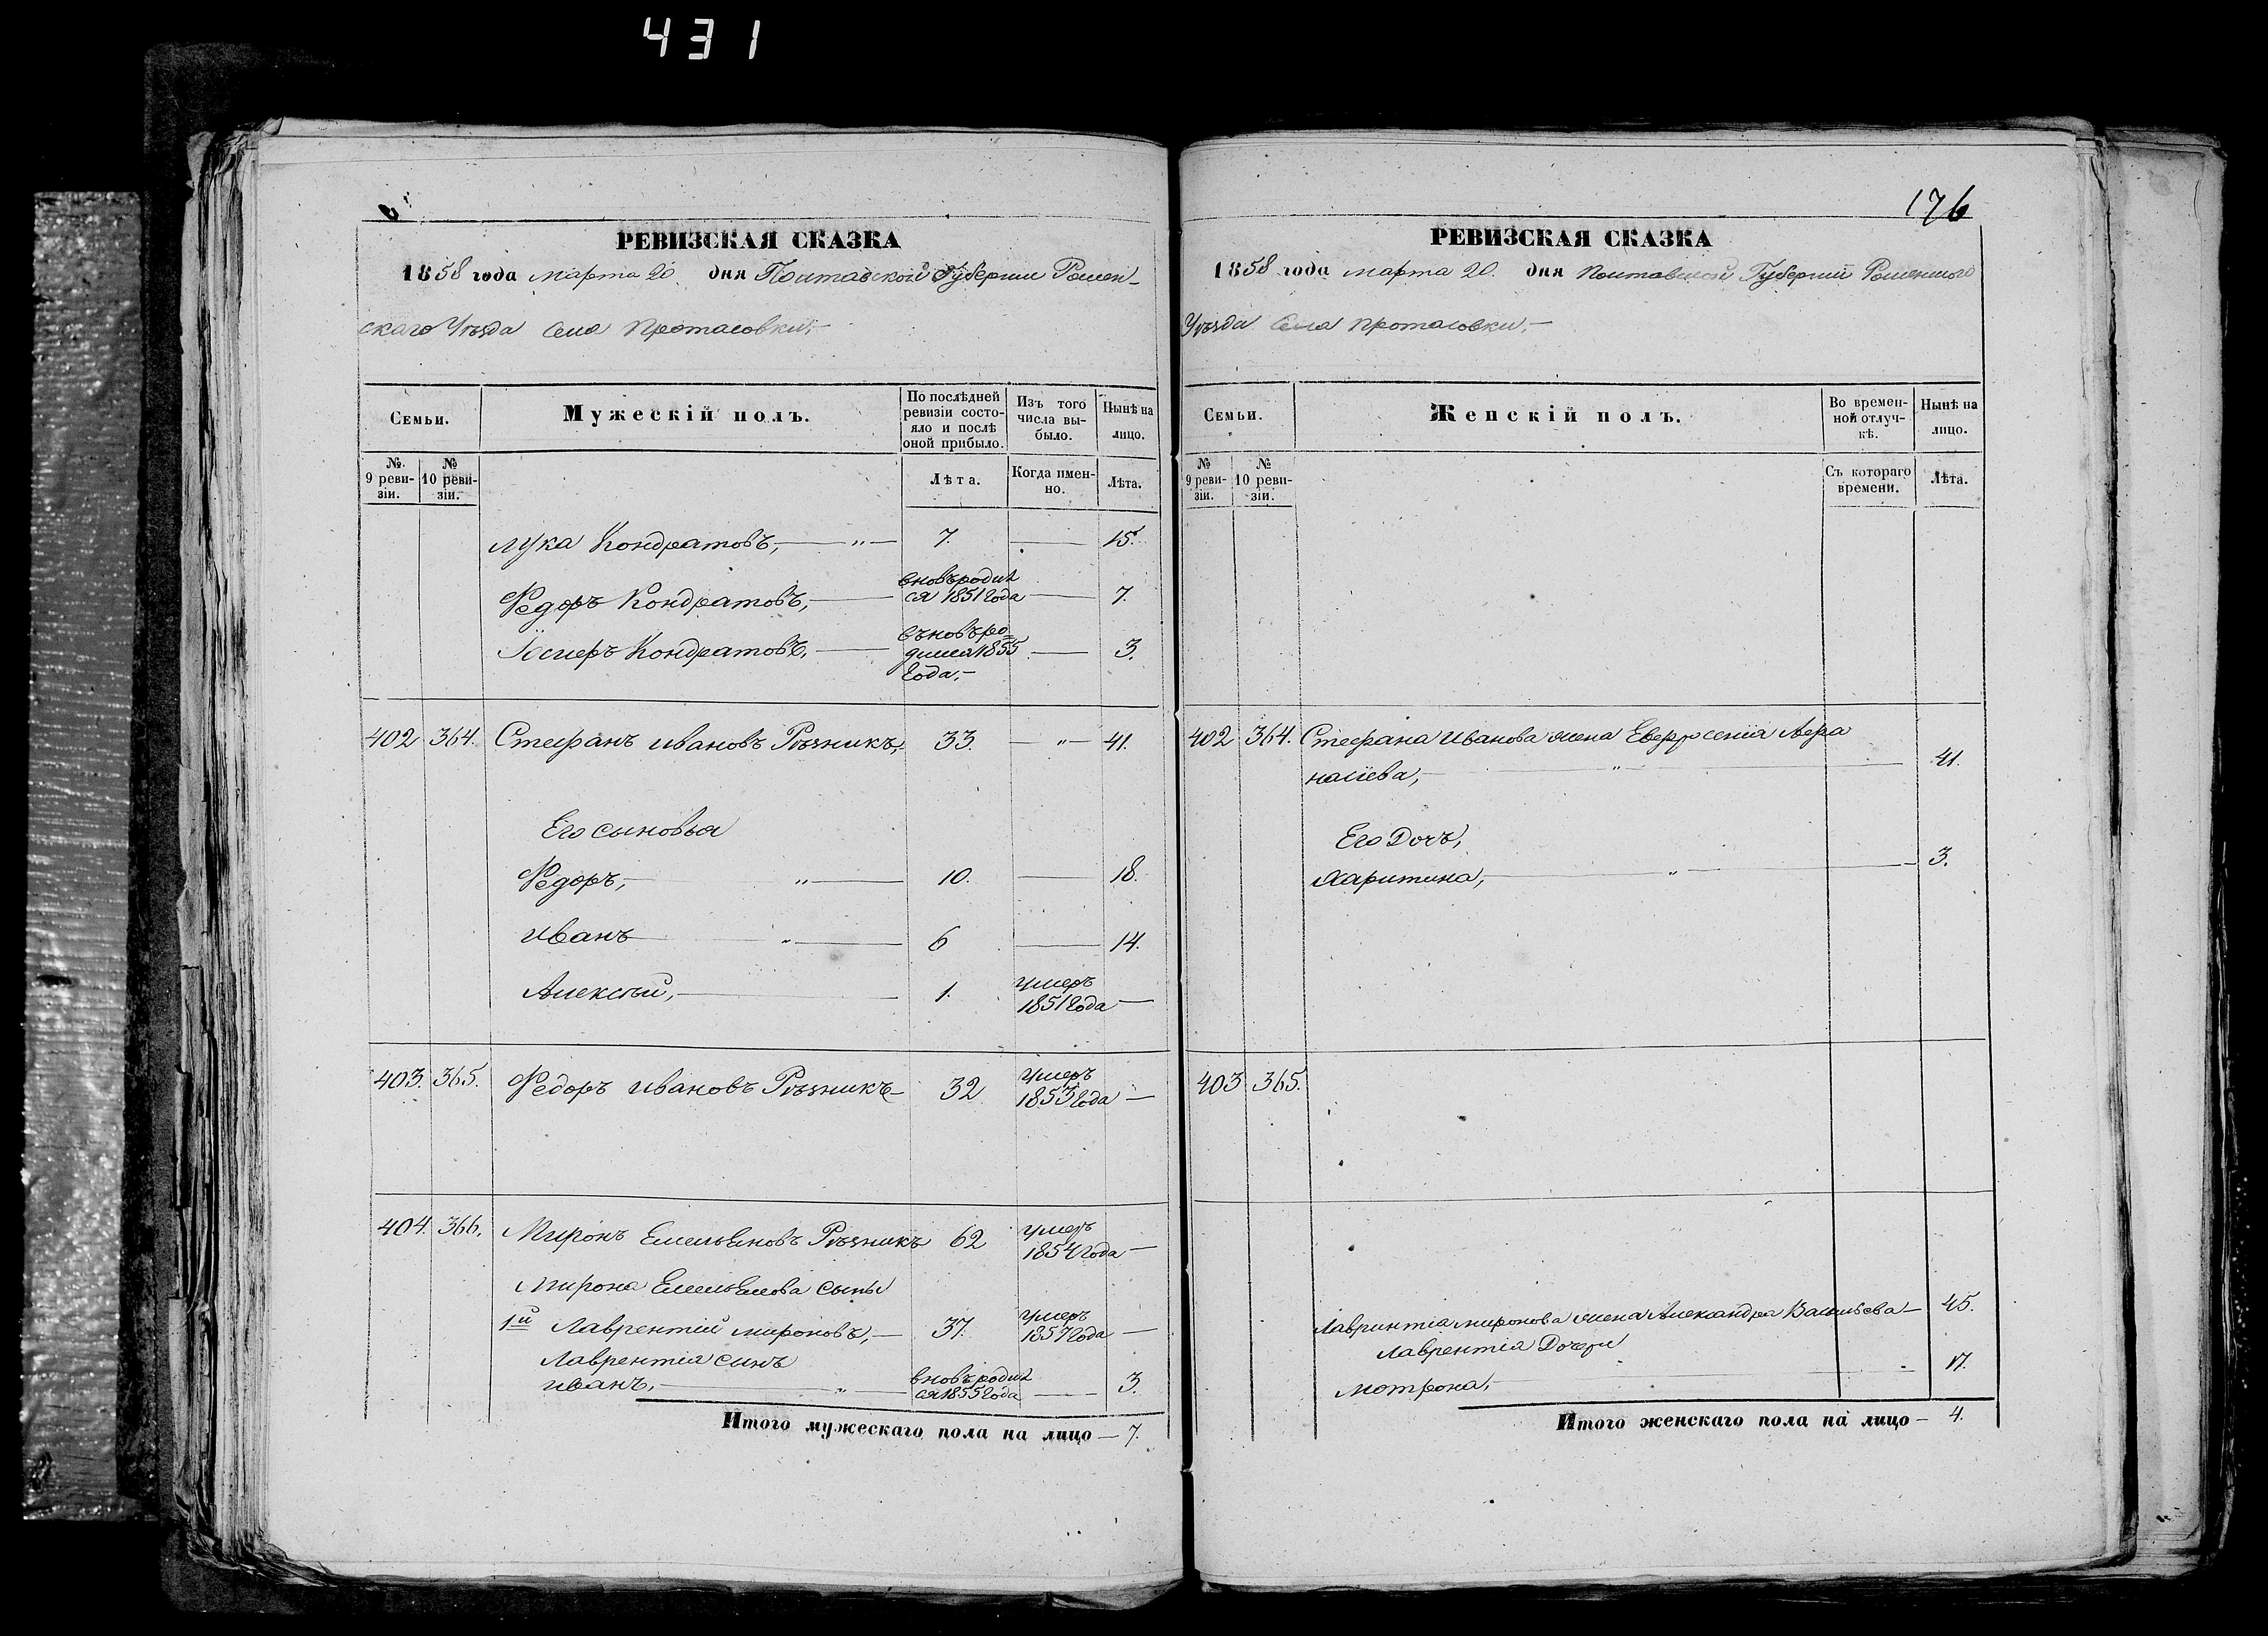 431
РЕВИЗСКАЯ СКАЗКА
1858 года Марта 20 дня Полтавской Губернии Ромен-
скаго Уѣзда Села Протасовки,-
Семьи.
Мужескій полъ.
По послѣдней ревизіи состо-
яло и послѣ оной прибыло.
Изъ того числа вы-
было.
Нынѣ на лицо.
№ 9 реви-
зіи.
№ 10 реви-
зіи.
Лѣта.
Когда имен-
но.
Лѣта.
Лука Кондратовъ,- „ - 7. — 15.
Ѳедоръ Кондратовъ,- вновь родил
ся 1851 года — 7.
Іосифъ Кондратовъ,- вновь ро=
дился 1855 — 3.
года,-
402 364. Стефанъ Ивановъ Рѣзникъ, 33. - „ - 41.
Его сыновья
Ѳедоръ,- „ — 10. — 18.
Иванъ „ — 6 — 14.
Алексѣй,- 1. умеръ
1851 года —
403. 365. Ѳедоръ Ивановъ Рѣзникъ 32 умеръ
1853 года —
404. 366. Миронъ Емельяновъ Рѣзникъ 62 умеръ
1854 года —
Мирона Емельянова сыны
1й Лаврентій Мироновъ,- 37. умеръ
1857 года —
Лаврентія сынъ
Иванъ,- „ — вновь родил
ся 1855 года — 3.
Итого мужескаго пола на лицо — 7.
176
РЕВИЗСКАЯ СКАЗКА
1858 года Марта 20. дня Полтавской Губерніи Роменскаго
Уѣзда Села Протасовки,-
Семьи.
Женскій полъ.
Во времен-
ной отлуч-
кѣ.
Нынѣ на лицо.
№ 9 реви-
зіи.
№ 10 реви-
зіи.
Съ котораго времени.
Лѣта.
402 364. Стефана Иванова жена Евфросенія Афа
насіева,- „ — 41.
Его Дочь,
Харитина,- „ — 3.
403 365.
Лавринтія Миронова жена Александра Васильева — 45.
Лаврентія Дочери
Мотрона,- 17.
Итого женскаго пола на лицо — 4.